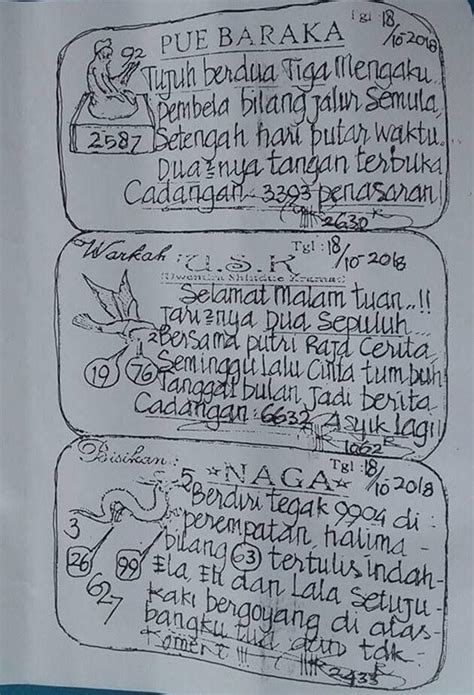 Tgl 18/10-2018
PUE BARAKA
92
2587
Tujuh berdua Tiga Mengaku
pembela bilang jalur Semula,
Setengah hari putar waktu
Dua²nya tangan terbuka
Cadangan 3393 penasaran
2630
Warkah U.S.K Tgl: 18/10-2018
Selamat Malam tuan..!!
Jari²nya Dua Sepuluh
Bersama putri Raja Cerita
Seminggu lalu Cinta tumbuh
Tanggal bulan jadi berita
Cadangan: 6632 Asyik lagi
19
76
1062
Bisikan: Tgl: 18/10-2018
NAGA
5
3
26
99
627
Berdiri tegak 9904 di
perempatan, halima-
bilang 03 tertulis indah-
Ela, Eli dan Lala Setuju-
Kaki bergoyang di atas-
bangku tua dan tdk
Koment !!!
2433